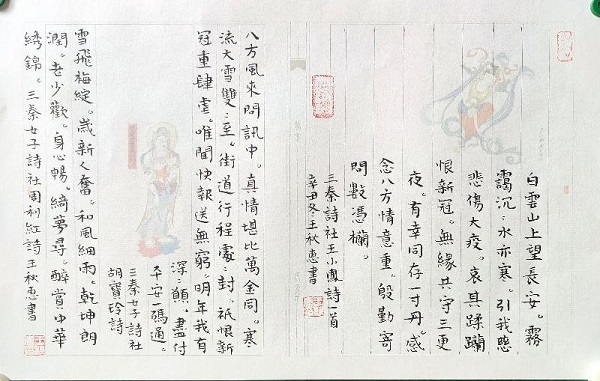 白雲山上望長安。霧
靄沉:水亦寒。引我愁
悲傷大疫。哀其蹂躪
恨新冠。無緣共守三更
夜。有幸同存一寸丹。感
念八方情意重。殷勤寄
問數憑欄。
三秦詩社王小鳳詩一首
辛丑冬王秋惠書
八方風來問訊中。真情堪比萬金同。寒
流大雪雙:至。街道行程處:封。祇恨新
冠重肆虐。唯聞快報送無窮。明年我有
深:願。盡付
平安一碼通。
三秦女子詩社
胡寶玲詩
雪飛梅綻。歲新人奮。和風細雨。乾坤朗
潤。老少歡。身心暢。綺夢尋。醉賞中華
綉錦。三秦女子詩社周利紅詩王秋惠書